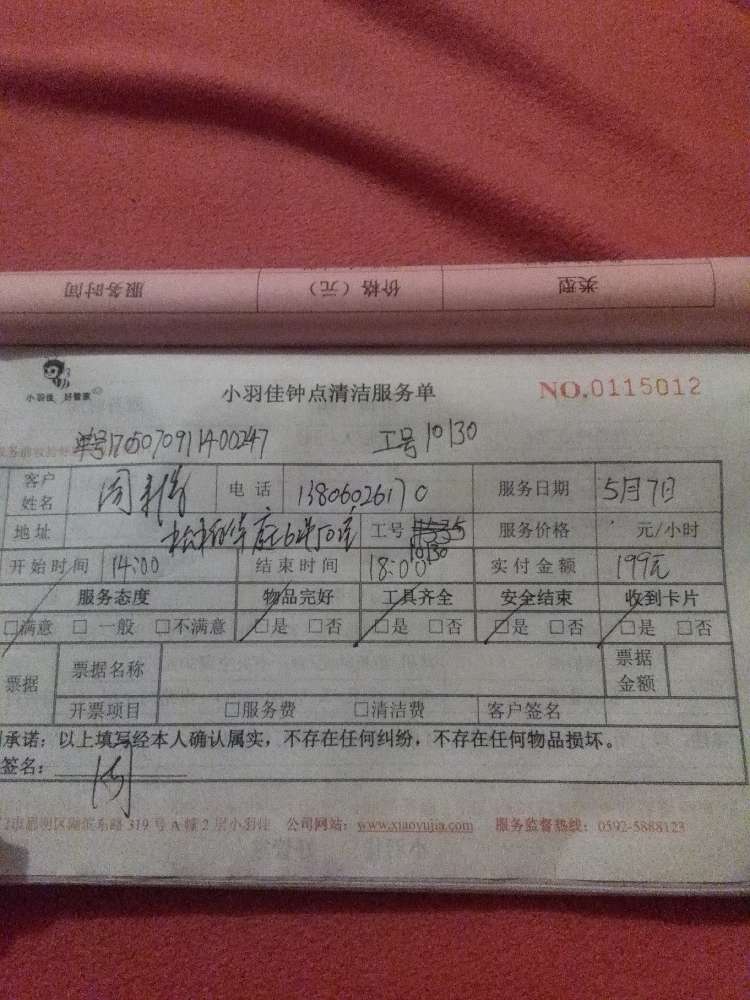 服务时间 价格（元） 类型
小羽佳 好管家 小羽佳钟点清洁服务单 NO.0115012
单号170507091400247 工号10130
客户姓名 电话 13806026170 服务日期 5月7日
地址 工号 10130 服务价格 元/小时
开始时间 14:00 结束时间 18:00 实付金额 199元
服务态度 物品完好 工具齐全 安全结束 收到卡片
□满意 □一般 □不满意 □是 □否 □是 □否 □是 □否 □是 □否
票据 票据名称 票据金额
开票项目 □服务费 □清洁费 客户签名
承诺：以上填写经本人确认属实，不存在任何纠纷，不存在任何物品损坏。
签名：
市思明区湖滨东路319号A幢2层小羽佳 公司网站：www.xiaoyujia.com 服务监督热线：0592-5888123